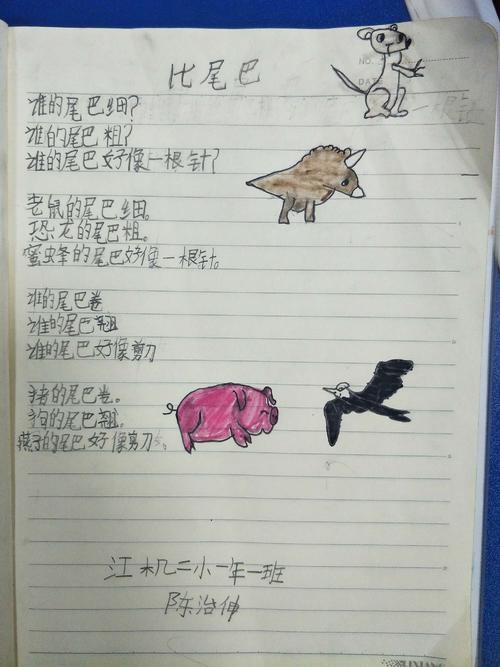 比尾巴
NO.
DATE
谁的尾巴细?
谁的尾巴粗?
谁的尾巴好像一根针?
老鼠的尾巴细。
恐龙的尾巴粗。
蜜蜂的尾巴好像一根针。
谁的尾巴卷
谁的尾巴翘
谁的尾巴好像剪刀
猪的尾巴卷。
狗的尾巴翘。
燕子的尾巴好像剪刀。
江机二小一年一班
陈治伸